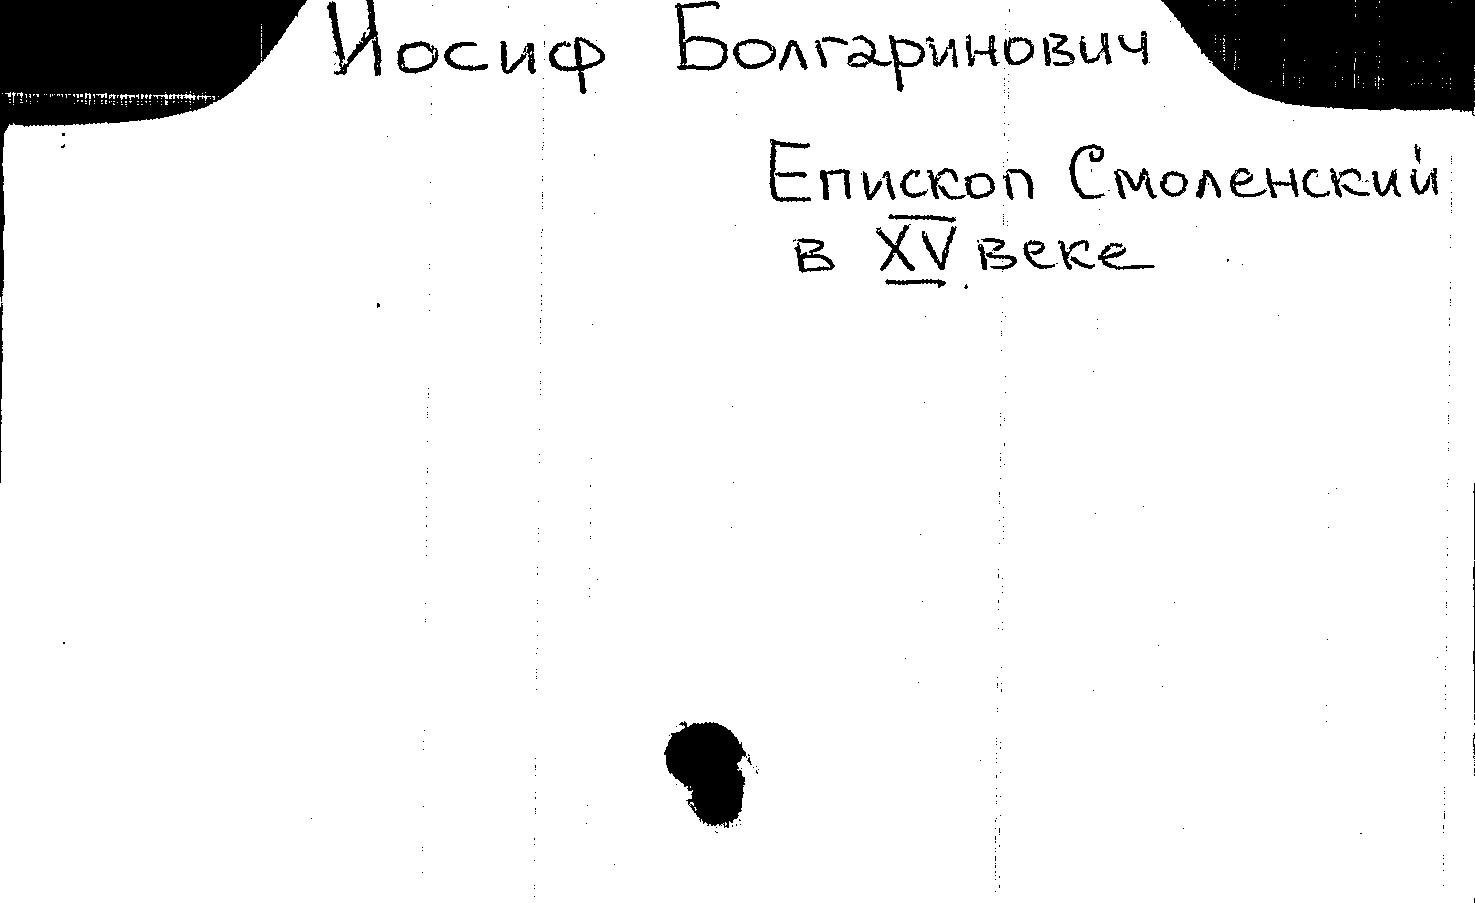 Иосиф Болгаринович
Епископ Смоленский
в XV веке